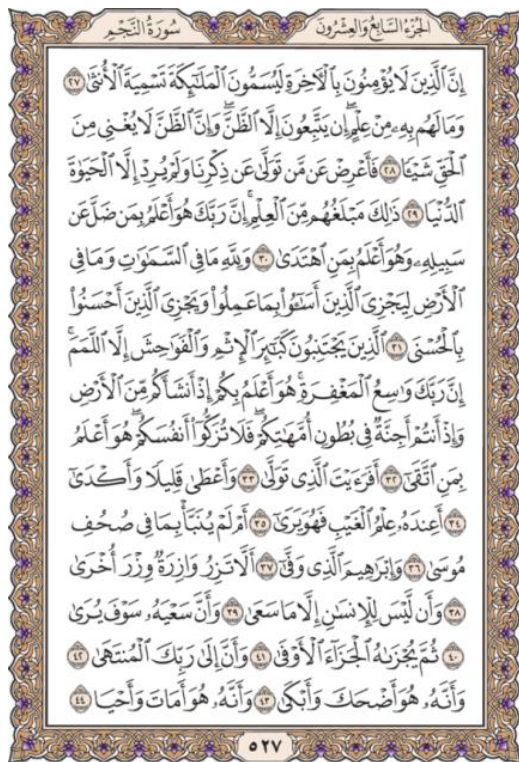 سُورَةُ النَّجْمِ الجُزْءُ السَّابِعُ وَالْعِشْرُونَ
إِنَّ ٱلَّذِينَ لَا يُؤْمِنُونَ بِٱلْأٓخِرَةِ لَيُسَمُّونَ ٱلْمَلَٰٓئِكَةَ تَسْمِيَةَ ٱلْأُنثَىٰ ٢٧
وَمَا لَهُم بِهِۦ مِنْ عِلْمٍ ۖ إِن يَتَّبِعُونَ إِلَّا ٱلظَّنَّ ۖ وَإِنَّ ٱلظَّنَّ لَا يُغْنِى مِنَ
ٱلْحَقِّ شَيْـًٔا ٢٨ فَأَعْرِضْ عَن مَّن تَوَلَّىٰ عَن ذِكْرِنَا وَلَمْ يُرِدْ إِلَّا ٱلْحَيَوٰةَ
ٱلدُّنْيَا ٢٩ ذَٰلِكَ مَبْلَغُهُم مِّنَ ٱلْعِلْمِ ۚ إِنَّ رَبَّكَ هُوَ أَعْلَمُ بِمَن ضَلَّ عَن
سَبِيلِهِۦ وَهُوَ أَعْلَمُ بِمَنِ ٱهْتَدَىٰ ٣٠ وَلِلَّهِ مَا فِى ٱلسَّمَٰوَٰتِ وَمَا فِى
ٱلْأَرْضِ لِيَجْزِىَ ٱلَّذِينَ أَسَٰٓـُٔوا۟ بِمَا عَمِلُوا۟ وَيَجْزِىَ ٱلَّذِينَ أَحْسَنُوا۟
بِٱلْحُسْنَى ٣١ ٱلَّذِينَ يَجْتَنِبُونَ كَبَٰٓئِرَ ٱلْإِثْمِ وَٱلْفَوَٰحِشَ إِلَّا ٱللَّمَمَ ۚ
إِنَّ رَبَّكَ وَٰسِعُ ٱلْمَغْفِرَةِ ۚ هُوَ أَعْلَمُ بِكُمْ إِذْ أَنشَأَكُم مِّنَ ٱلْأَرْضِ
وَإِذْ أَنتُمْ أَجِنَّةٌ فِى بُطُونِ أُمَّهَٰتِكُمْ ۖ فَلَا تُزَكُّوٓا۟ أَنفُسَكُمْ ۖ هُوَ أَعْلَمُ
بِمَنِ ٱتَّقَىٰٓ ٣٢ أَفَرَءَيْتَ ٱلَّذِى تَوَلَّىٰ ٣٣ وَأَعْطَىٰ قَلِيلًا وَأَكْدَىٰٓ
٣٤ أَعِندَهُۥ عِلْمُ ٱلْغَيْبِ فَهُوَ يَرَىٰٓ ٣٥ أَمْ لَمْ يُنَبَّأْ بِمَا فِى صُحُفِ
مُوسَىٰ ٣٦ وَإِبْرَٰهِيمَ ٱلَّذِى وَفَّىٰٓ ٣٧ أَلَّا تَزِرُ وَازِرَةٌ وِزْرَ أُخْرَىٰ
٣٨ وَأَن لَّيْسَ لِلْإِنسَٰنِ إِلَّا مَا سَعَىٰ ٣٩ وَأَنَّ سَعْيَهُۥ سَوْفَ يُرَىٰ
٤٠ ثُمَّ يُجْزَىٰهُ ٱلْجَزَآءَ ٱلْأَوْفَىٰ ٤١ وَأَنَّ إِلَىٰ رَبِّكَ ٱلْمُنتَهَىٰ ٤٢
وَأَنَّهُۥ هُوَ أَضْحَكَ وَأَبْكَىٰ ٤٣ وَأَنَّهُۥ هُوَ أَمَاتَ وَأَحْيَا ٤٤
٥٢٧